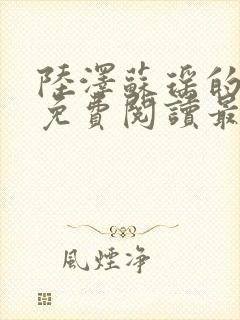 陸澤蘇瑤的
免費閱讀最
風煙净